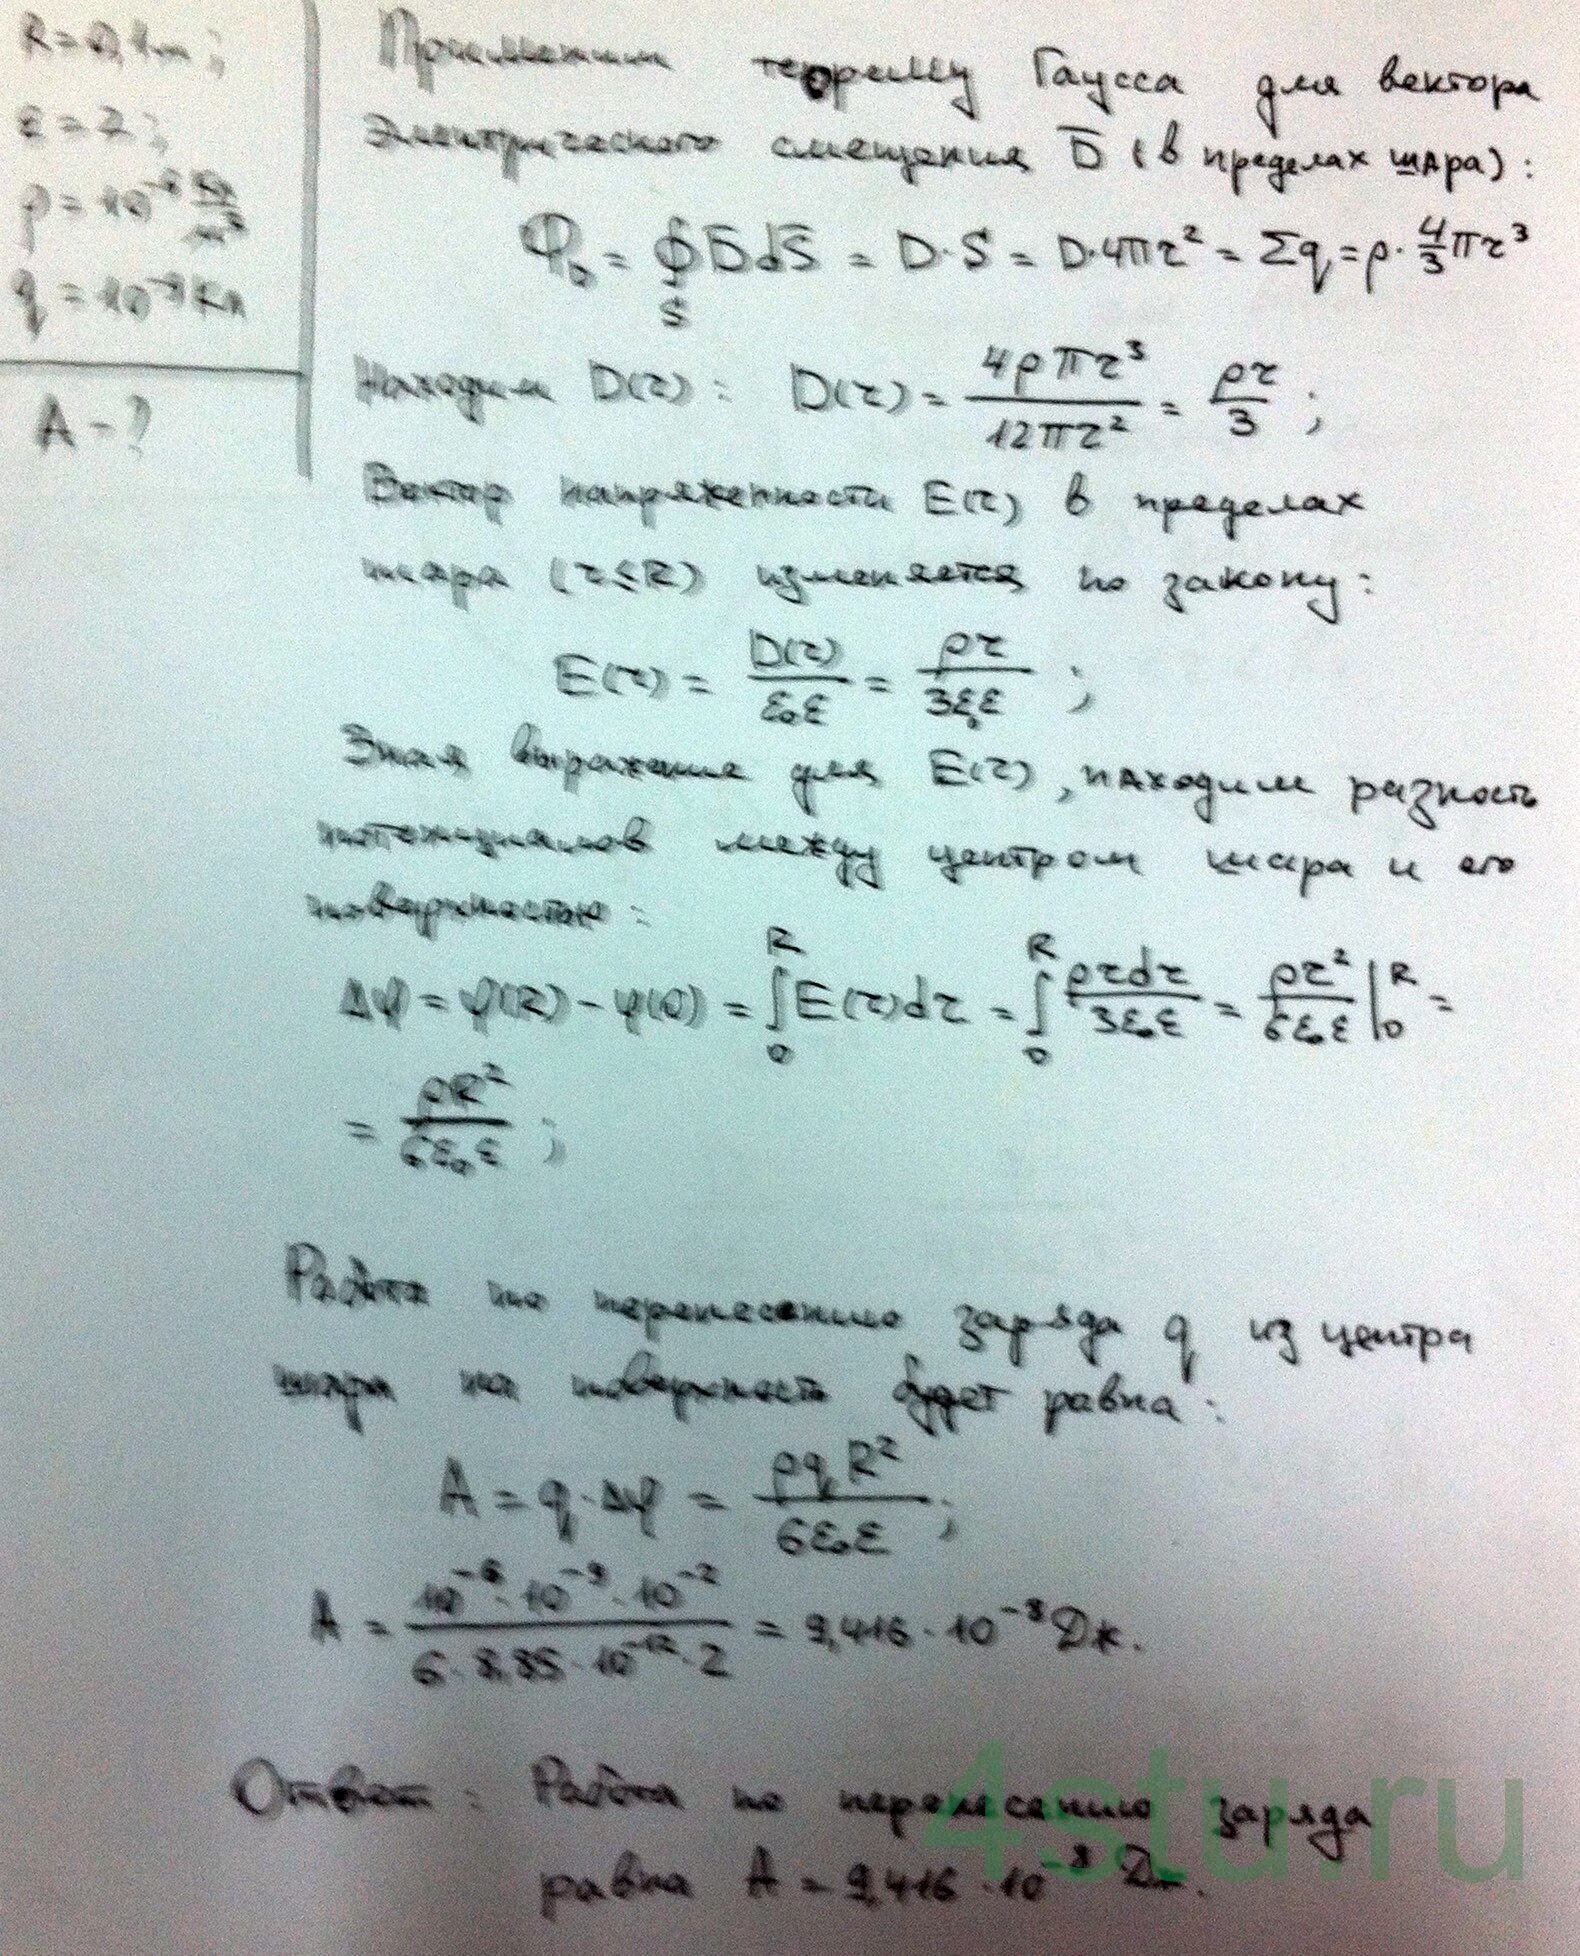 R = 0,1 м;
ε = 2;
ρ = 10⁻⁶ Кл/м³
q = 10⁻⁹ Кл
A - ?
Применим теорему Гаусса для вектора
электрического смещения D̅ (в пределах шара):
Φ_D = ∮_S D̅dS̅ = D·S = D·4πr² = Σq = ρ·4/3 πr³
Находим D(r): D(r) = 4ρπr³/12πr² = ρr/3;
Вектор напряженности E(r) в пределах
шара (r≤R) изменяется по закону:
E(r) = D(r)/ε₀ε = ρr/3ε₀ε;
Зная выражение для E(r), находим разность
потенциалов между центром шара и его
поверхностью:
Δφ = φ(R) - φ(0) = ∫₀ᴿ E(r)dr = ∫₀ᴿ ρrdr/3ε₀ε = ρr²/6ε₀ε |₀ᴿ =
= ρR²/6ε₀ε;
Работа по перенесению заряда q из центра
шара на поверхность будет равна:
A = q·Δφ = ρqR²/6ε₀ε;
A = 10⁻⁶·10⁻⁹·10⁻²/6·8,85·10⁻¹²·2 = 9,416·10⁻⁸ Дж.
Ответ: Работа по перенесению заряда
равна A = 9,416·10⁻⁸ Дж.
4stu.ru